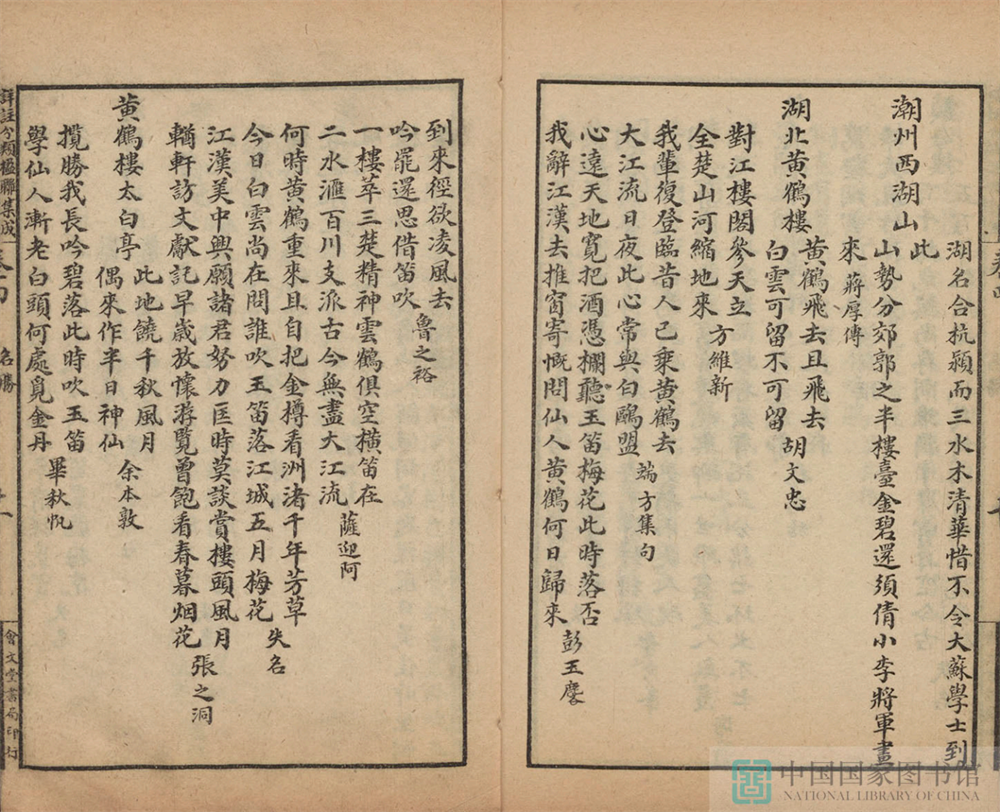 潮州西湖山
湖名合杭潁而三水木清華惜不令大蘇學士到
此
山勢分郊郭之半樓臺金碧還須倩小李將軍畫
來 蔣厚傅
湖北黃鶴樓
黃鶴飛去且飛去
白雲可留不可留 胡文忠
對江樓閣參天立
全楚山河縮地來 方維新
我輩復登臨昔人已乘黃鶴去
大江流日夜此心常與白鷗盟 端方集句
心遠天地寬把酒憑欄聽玉笛梅花此時落否
我辭江漢去推窗寄慨問仙人黃鶴何日歸來 彭玉麐
到來徑欲凌風去
吟罷還思借笛吹 魯之裕
一樓萃三楚精神雲鶴俱空橫笛在
二水滙百川支派古今無盡大江流 薩迎阿
何時黃鶴重來且自把金樽看洲渚千年芳草
今日白雲尚在問誰吹玉笛落江城五月梅花 失名
江漢美中興願諸君努力匡時莫談賞樓頭風月
輶軒訪文獻記早歲放懷游覽曾飽看春暮烟花 張之洞
黃鶴樓太白亭
此地饒千秋風月
偶來作半日神仙 余本敦
攬勝我長吟碧落此時吹玉笛
學仙人漸老白頭何處覓金丹 畢秋帆
詳註分類楹聯集成
名勝
會文堂書局印行
中国国家图书馆
NATIONAL LIBRARY OF CHINA